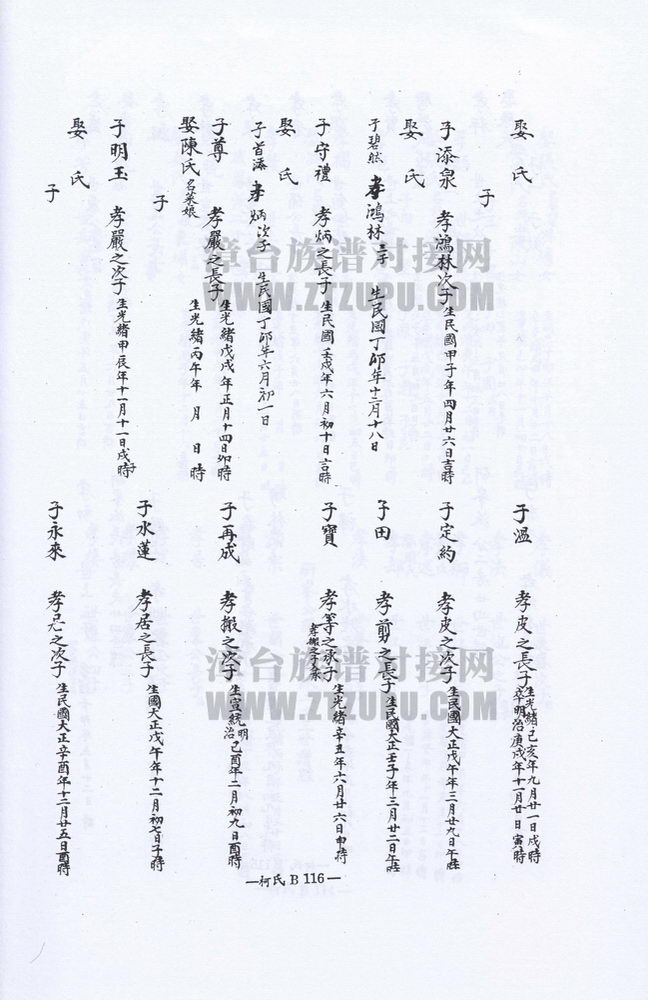 娶 氏
子
子添泉 孝鴻林次子 生民國甲子年四月廿六日言時
娶 氏
子碧賅 孝鴻林三子 生民國丁卯年十二月十八日
子守禮 孝炳之長子 生民國壬戌年六月初十日言時
娶 氏
子首添 孝炳次子 生民國丁卯年六月初一日
子尊 孝嚴之長子 生光緒戊戌年正月十四日卯時
娶陳氏名英娘 生光緒丙午年 月 日 時
子
子明玉 孝嚴之次子 生光緒甲辰年十一月十一日戌時
娶 氏
子
子溫 孝皮之長子 生光緒己亥年九月廿一日戌時
卒明治庚戌年十一月廿日寅時
子定約 孝皮之次子 生民國大正戊午年三月廿九日午時
子田 孝剪之長子 生民國大正壬子年三月廿三日午時
子寶 孝箏之承子 生光緒辛丑年六月廿六日申時
孝搬之子承
子再成 孝搬之次子 生宣統明治己酉年二月初九日酉時
子水蓮 孝居之長子 生國大正戊午年十二月初七日子時
子永來 孝尼之次子 生民國大正辛酉年十二月廿五日酉時
—柯氏 B 116—
漳台族谱对接网
WWW.ZTZUPU.COM
漳台族谱对接网
WWW.ZTZUPU.COM